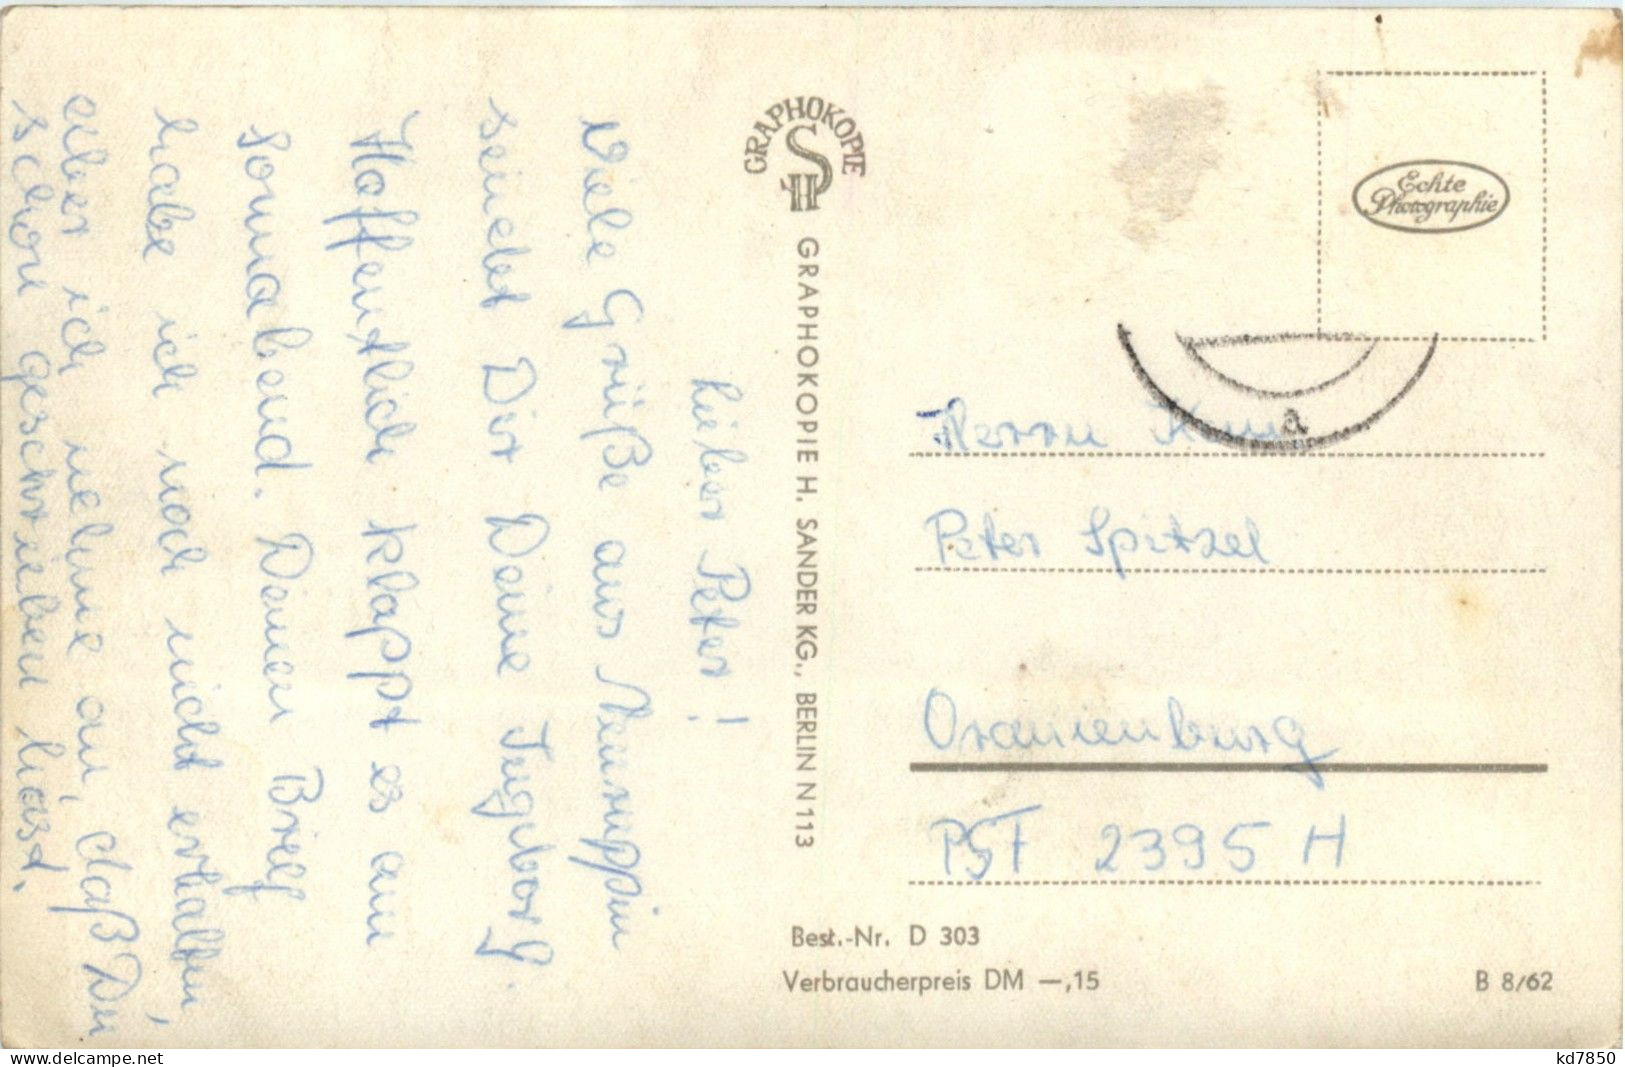 Lieber Peter!
Viele Grüße aus Neuruppin
sendet Dir Deine Ingborg.
Hoffentlich klappt es am
Sonnabend. Deinen Brief
habe ich noch nicht erhalten,
aber ich nehme an, daß Du
schon geschrieben hast.
GRAPHOKOPIE
SH
GRAPHOKOPIE H. SANDER KG., BERLIN N 113
Echte
Photographie
a
Herrn
Peter Spitzel
Oranienburg
PSF 2395 H
Best.-Nr. D 303
Verbraucherpreis DM —,15
B 8/62
www.delcampe.net
kd7850